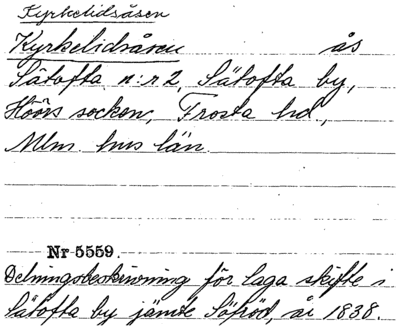 Kyrkelidsåsen
Kyrkelidsåsen ås
Sätofta n:r 2, Sätofta by,
Höörs socken, Frosta hd.,
Mlm. hus län.
Nr 5559.
Delningsbeskrivning för laga skifte i
Sätofta by jämte Söfröd, år 1838.